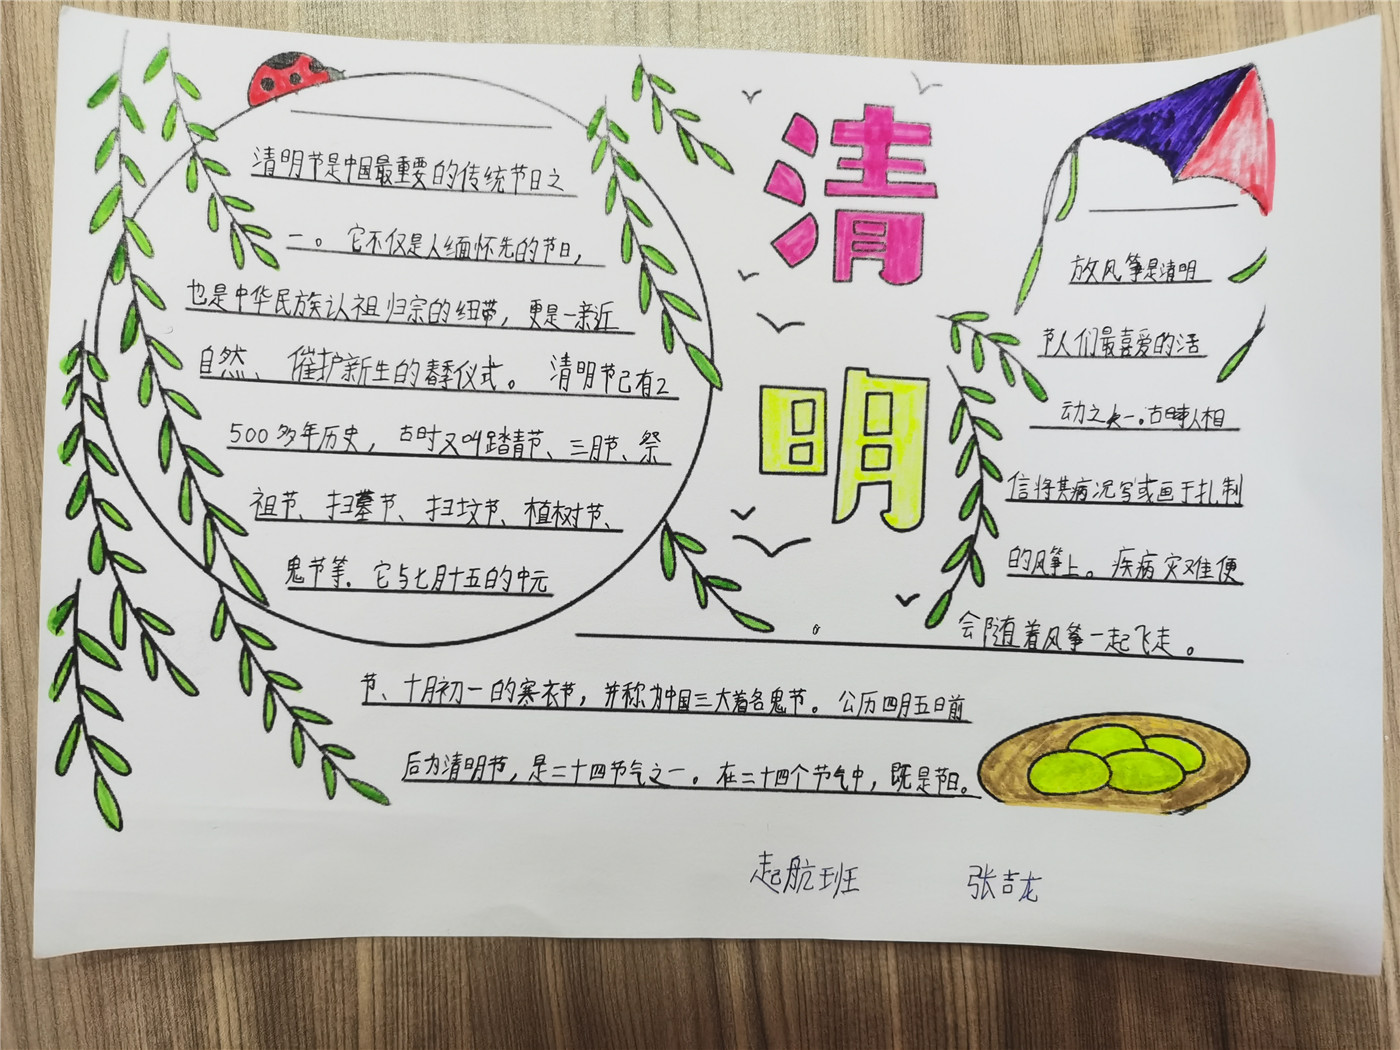 清明节是中国最重要的传统节日之
一。它不仅是人缅怀先的节日，
也是中华民族认祖归宗的纽带，更是一亲近
自然、催护新生的春季仪式。清明节已有2
500多年历史，古时又叫踏青节、三月节、祭
祖节、扫墓节、扫坟节、植树节、
鬼节等．它与七月十五的中元
节、十月初一的寒衣节，并称为中国三大着名鬼节。公历四月五日前
后为清明节，是二十四节气之一。在二十四个节气中，既是节日。
清
明
放风筝是清明
节人们最喜爱的活
动之一。古時人相
信将其病况写或画于扎制
的风筝上。疾病灾难便
会随着风筝一起飞走。
起航班 张吉龙